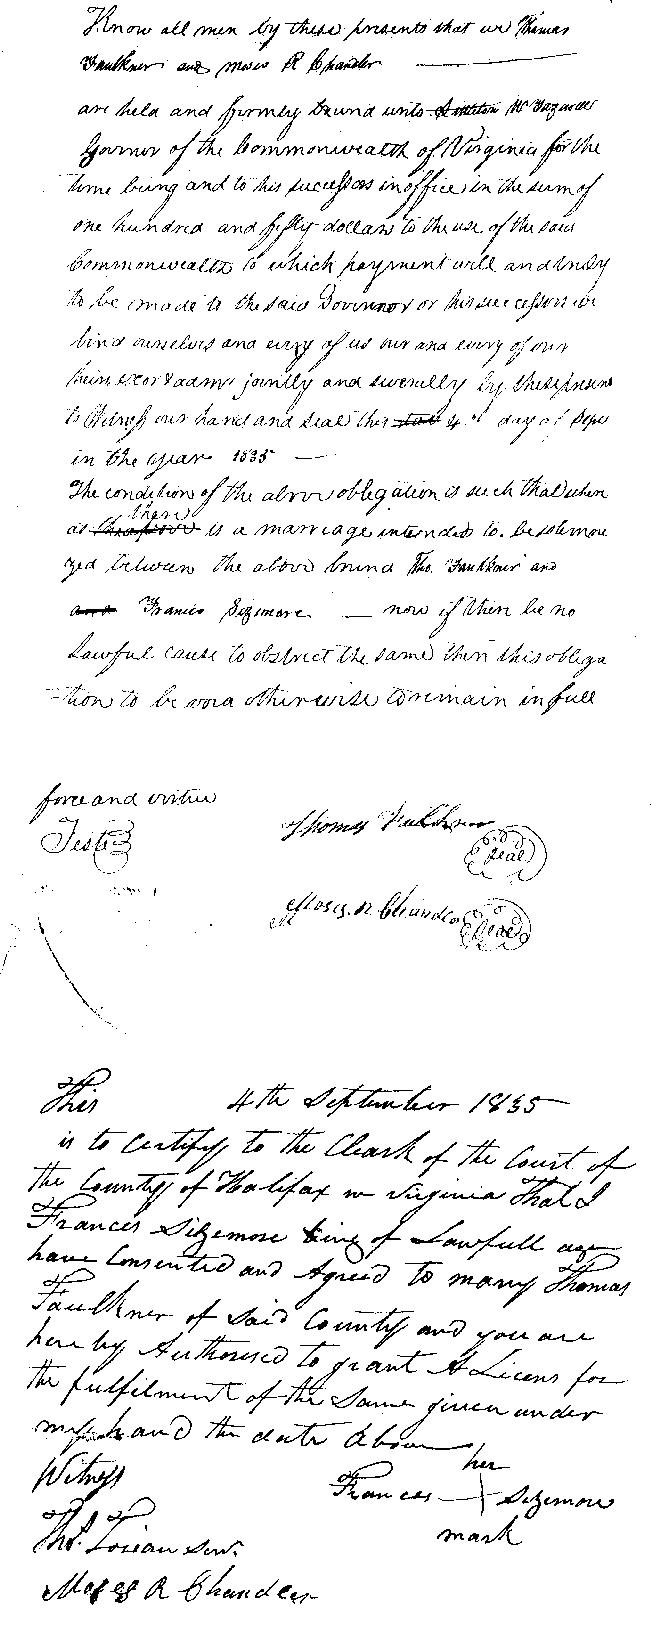 Know all men by these presents that we Thomas
Faulkner and Moses R Chandler
are held and firmly bound unto Littleton W Tazewell
Govrnor of the Commonwealth of Virginia for the
time being and to his successors in office in the sum of
one hundred and fifty dollars to the use of the said
Commonwealth to which payment well and truly
to be made to the said Govirnor or his successors we
bind ourselves and evry of us our and every of our
heirs exor & admr jointly and severally by these presents
to Witness our hand and seal this 4th day of Sepr
in the year 1835
The condition of the above obligation is such that when
there
as the above is a marriage intended to be solemni
zed between the above bound Tho. Faulkner and
and Frances Sizemore now if there be no
Lawful cause to obstruct the same then this obliga
tion to be void otherwise to remain in full
force and virtue
Teste
Thomas Faulkner Seal
Moses R Chandler Seal
This 4th September 1835
is to certify to the Cleark of the Court of
the County of Halifax in Virginia That I
Frances Sizemore being of Lawfull age
have Consented and Agreed to marry Thomas
Faulkner of Said County and you are
here by Authorised to grant A Licens for
the fulfilment of the Same given under
my hand the date Above
Witness
her
Frances Sizemore
mark
Thos.
Moses R Chandler